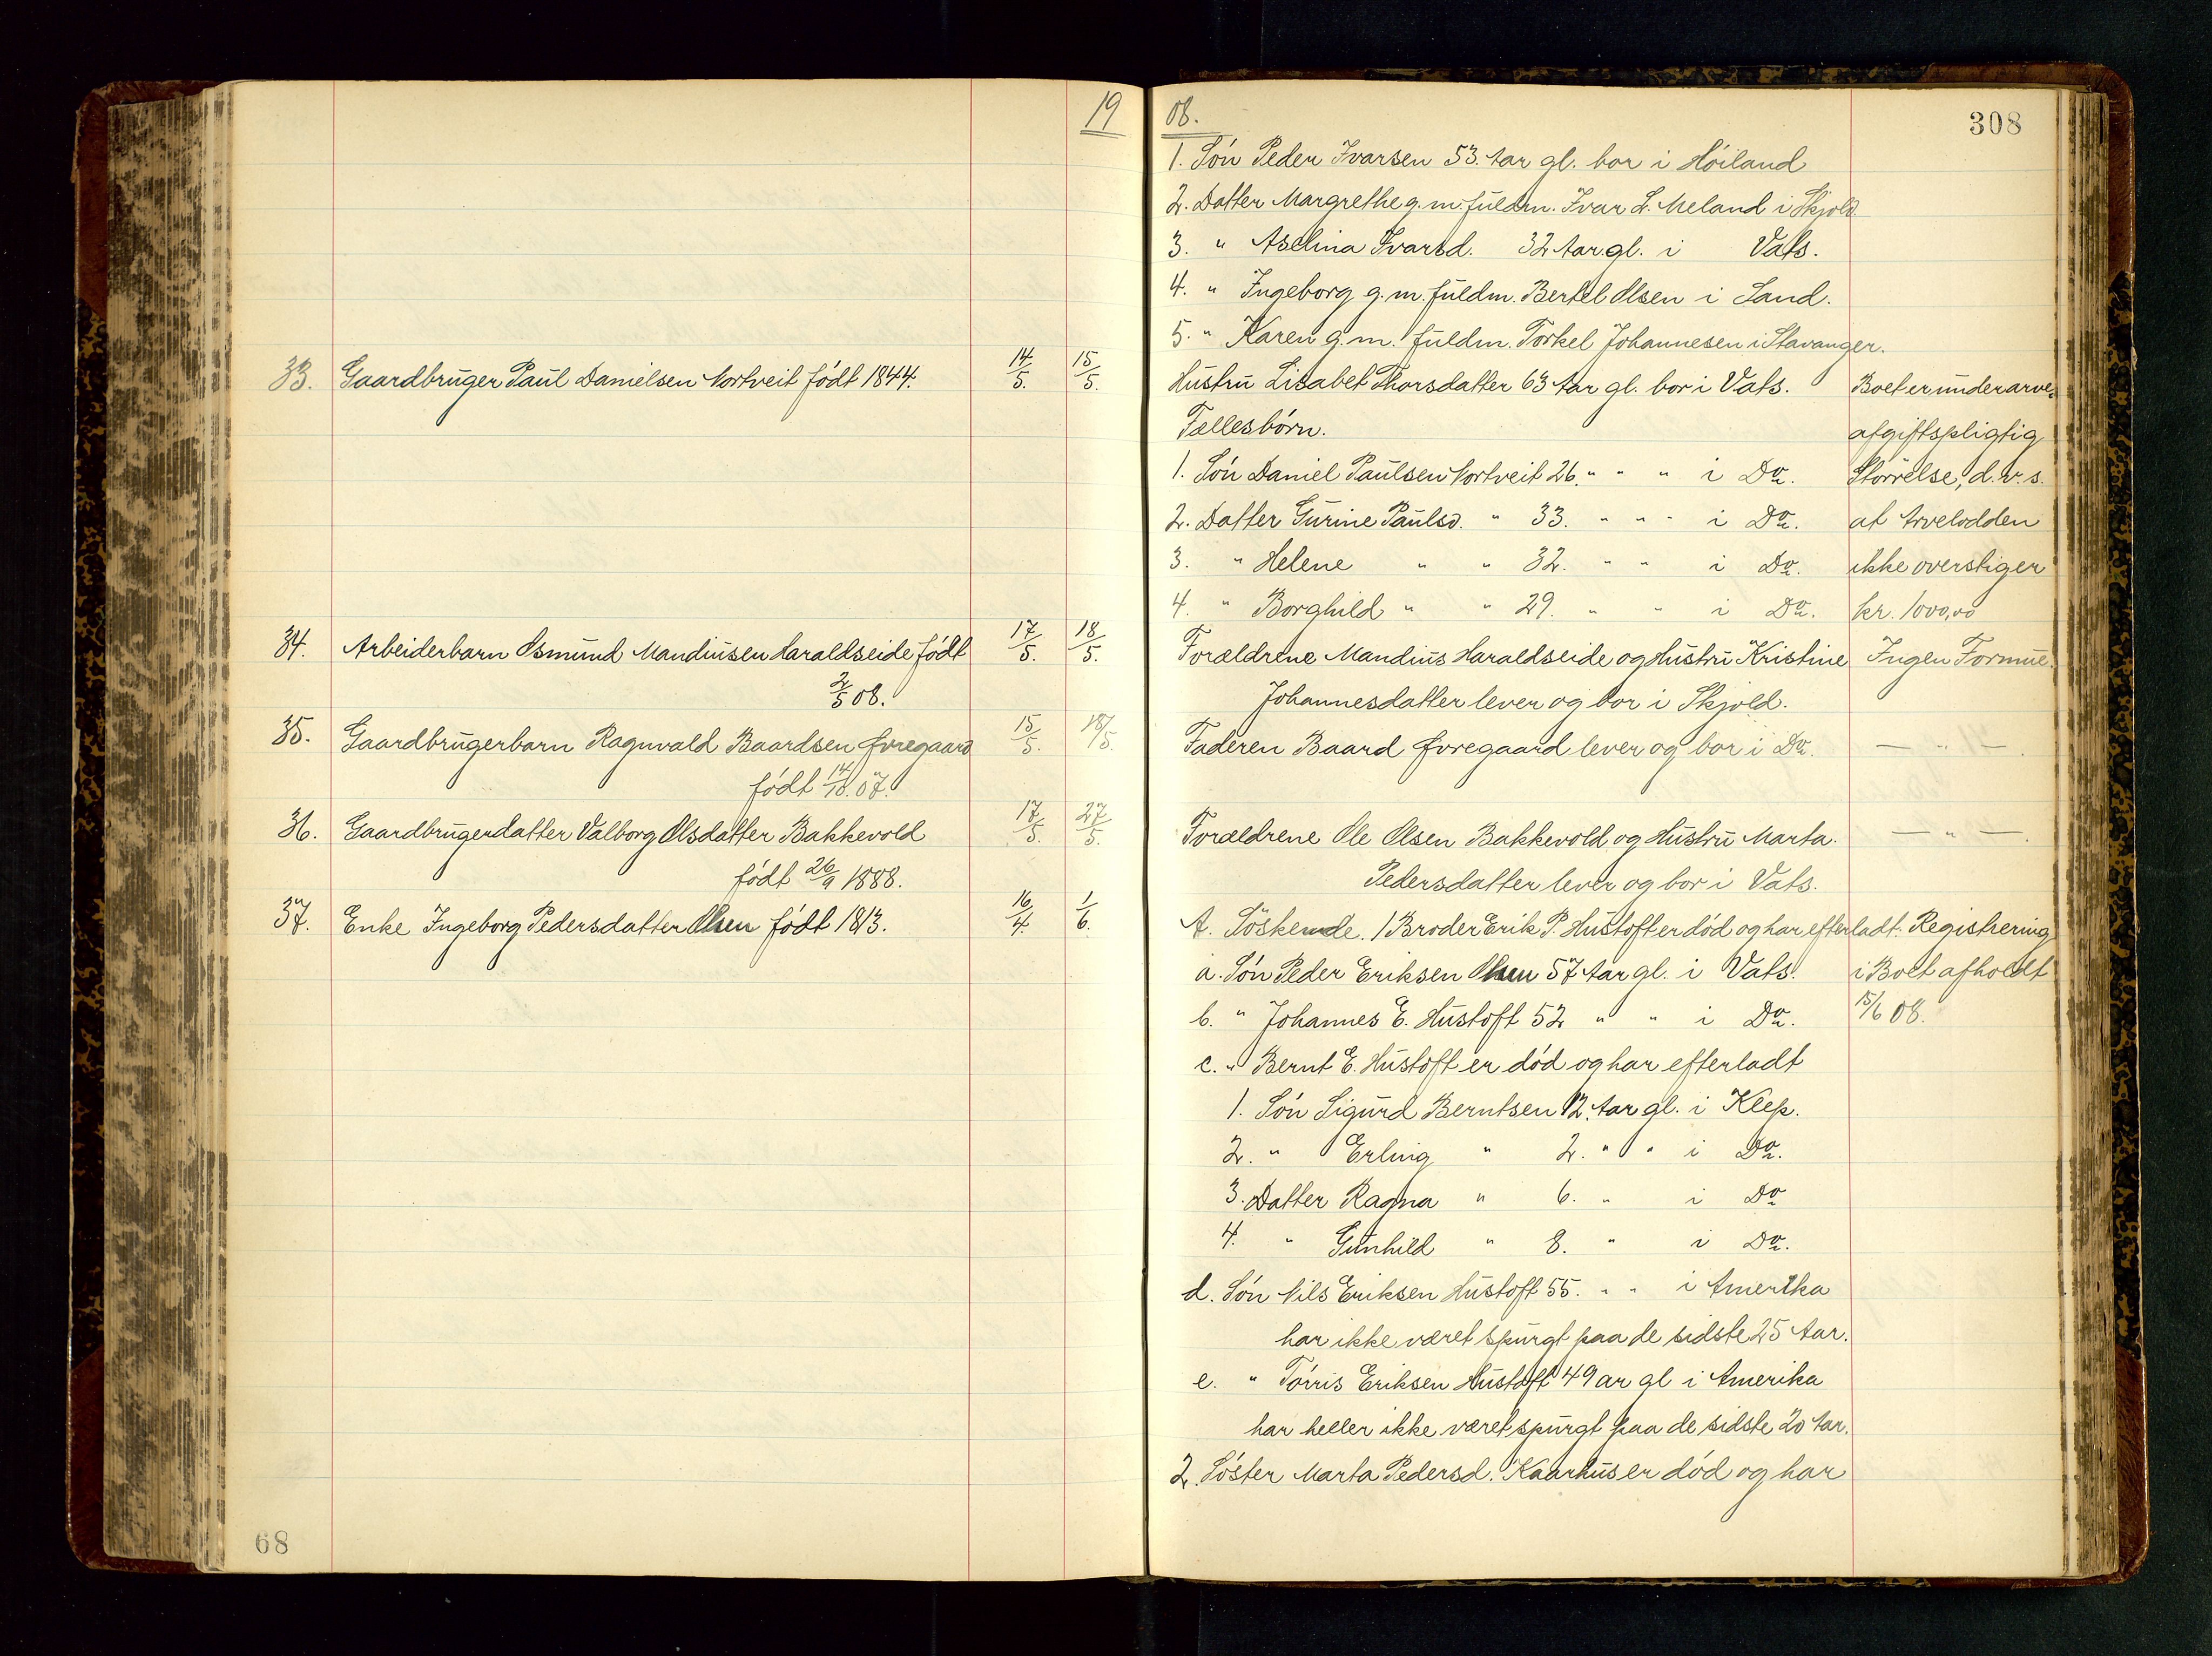 19
33. Gaardbruger Paul Danielsen Nortveit født 1844. 14/5. 15/5.
34. Arbeiderbarn Osmund Mandiusen Haraldseide født 17/5. 18/5.
2/5 08.
35. Gaardbrugerbarn Ragnvald Baardsen Øvregaard 15/5. 18/5.
født 14/10. 07.
36. Gaardbrugerdatter Valborg Olsdatter Bakkevold 17/5. 27/5.
født 26/9 1888.
37. Enke Ingeborg Pedersdatter Olsen født 1813. 16/4. 1/6.
68
08.
308
1. Søn Peder Ivarsen 53. Aar gl. bor i Høiland
2. Datter Margrethe g. m. fuldm. Ivar L. Meland i Skjold
3. " Aselina Ivarsd. 32 Aar gl. i Vats.
4. " Ingeborg g. m. fuldm. Bertel Olsen i Sand.
5. " Karen g. m. fuldm. Torkel Johannesen i Stavanger.
Hustru Lisabet Thorsdatter 63 Aar gl. bor i Vats. Boet er under arve-
Fællesbørn. afgiftspligtig
1. Søn Daniel Paulsen Nortveit 26. " " " i Do. Størrelse, d.v.s.
2. Datter Gurine Paulsd. " 33. " " " i Do. at Arvelodden
3. " Helene " " 32. " " i Do. ikke overstiger
4. " Borghild " " 29. " " i Do. kr. 1000,00
Forældrene Mandius Haraldseide og Hustru Kristine Ingen Formue.
Johannesdatter lever og bor i Skjold.
Faderen Baard Øvregaard lever og bor i Do. — " —.
Forældrene Ole Olsen Bakkevold og Hustru Marta. — " —.
Pedersdatter lever og bor i Vats.
A. Söskende. 1 Broder Erik P. Hustoft er død og har efterladt: Registrering
a. Søn Peder Eriksen Olsen 57 Aar gl. i Vats. i Boet afholdt
b. " Johannes E. Hustoft 52 " " i Do. 15/6 08.
c. " Bernt E. Hustoft er død og har efterladt
1. Søn Sigurd Berntsen 12. Aar gl. i Klep.
2. " Erling " 2. " " i Do.
3. Datter Ragna " 6. " i Do
4. " Gunhild " 8. " i Do.
d. Søn Nils Eriksen Hustoft 55. " " i Amerika
har ikke været spurgt paa de sidste 25 Aar.
e. " Tørris Eriksen Hustoft 49 ar gl i Amerika
har heller ikke været spurgt paa de sidste 20 Aar.
2. Søster Marta Pedersd. Kaarhus er død og har